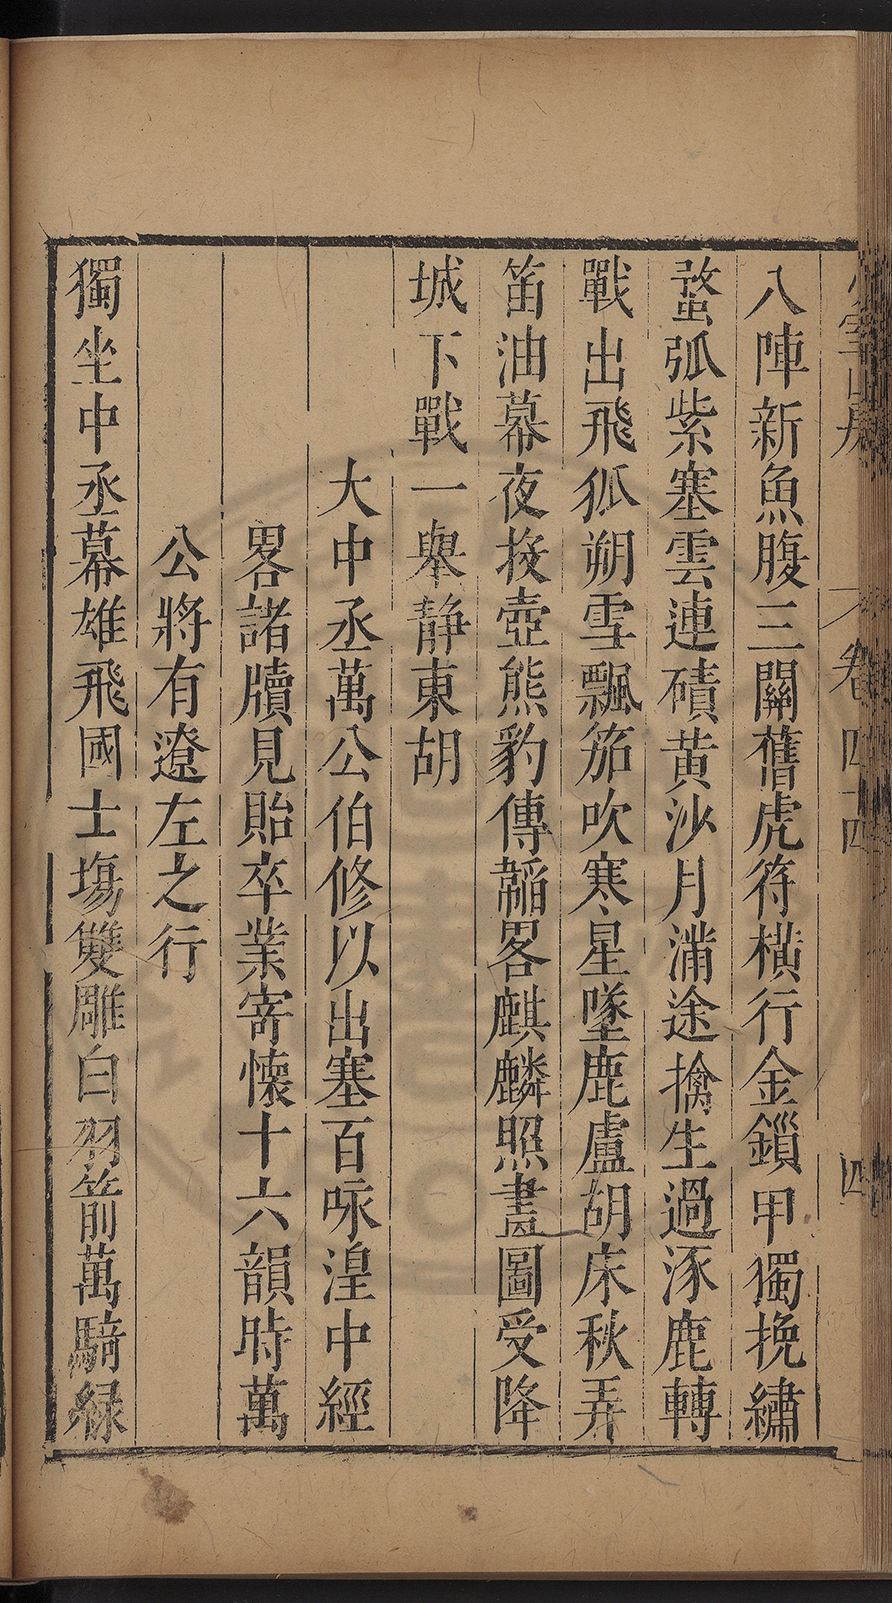 八陣新魚腹三關舊虎符橫行金鎻甲獨挽繡
蝥弧紫塞雲連磧黄沙月滿途擒生過涿鹿轉
戰出飛狐朔雪飄笳吹寒星墜鹿盧胡床秋弄
笛油幕夜投壺熊豹傳韜畧麒麟照畫圖受降
城下戰一舉静東胡
大中丞萬公伯修以出塞百咏湟中經
畧諸牘見貽卒業寄懷十六韻時萬
公將有遼左之行
獨坐中丞幕雄飛國士塲雙雕白羽箭萬騎緑
卷四十四
四